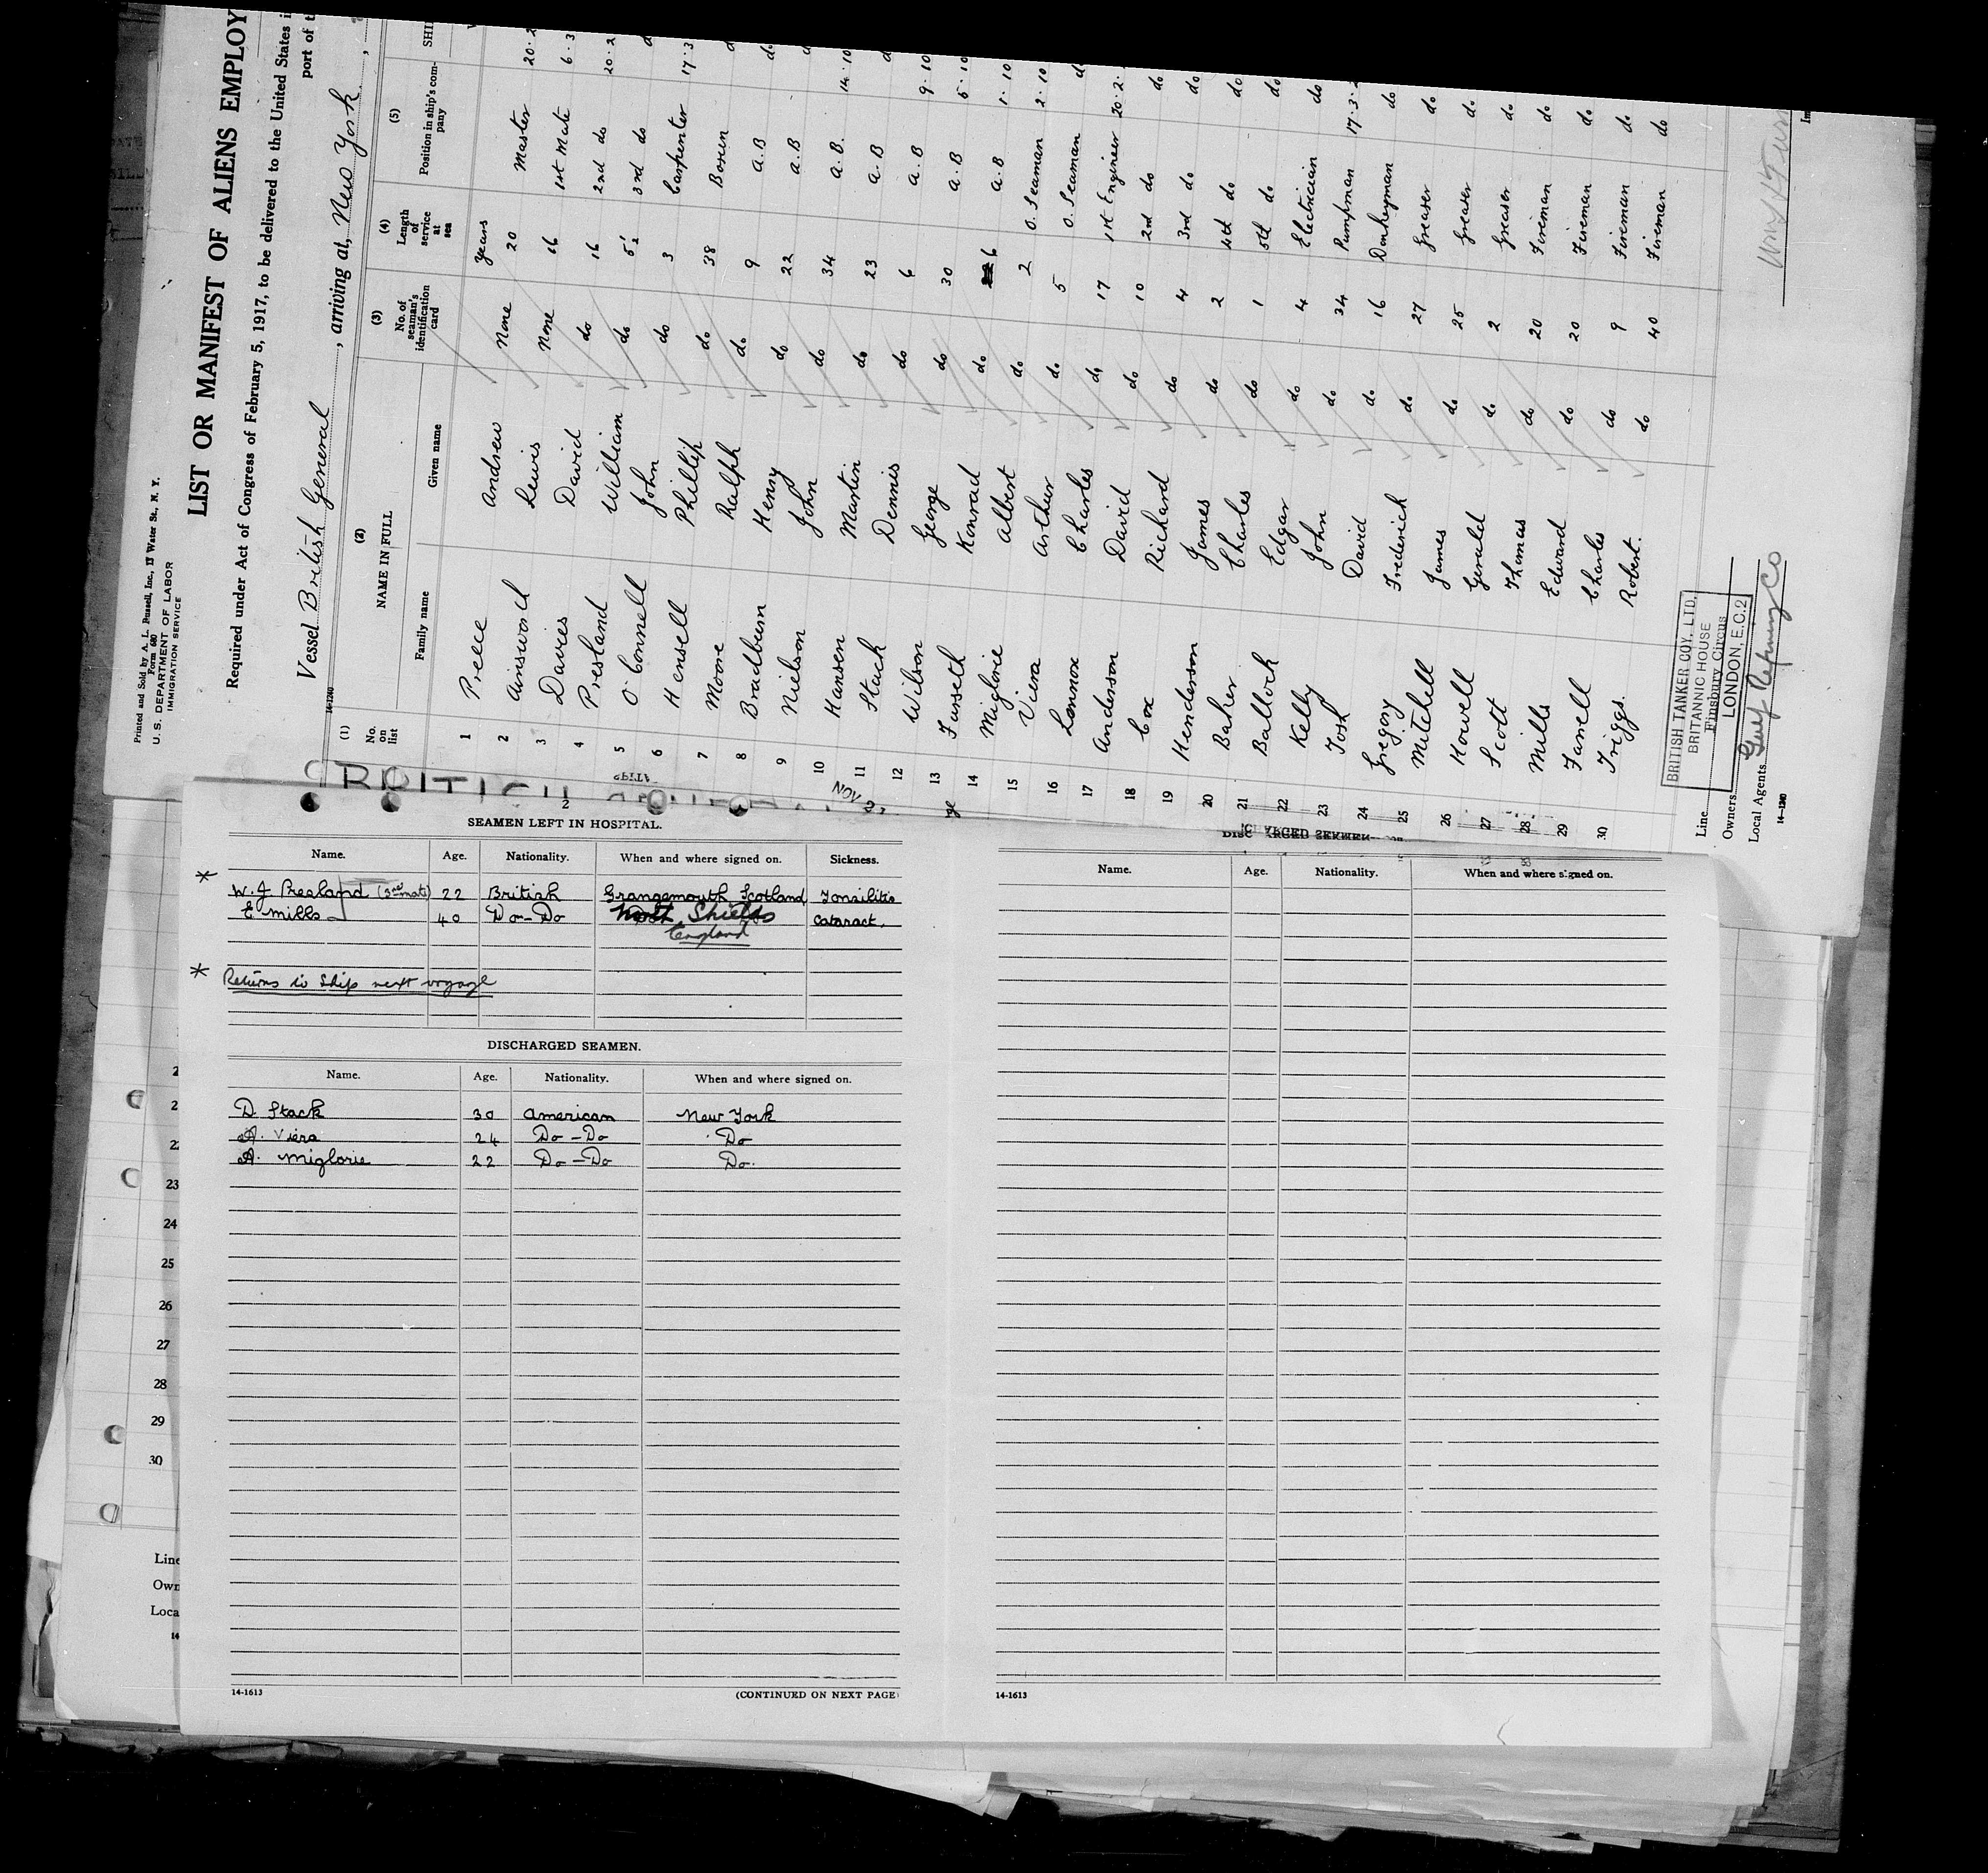 Printed and Sold by A. L. Russell, Inc., 17 Water St., N. Y.
Form 680
U. S. DEPARTMENT OF LABOR
IMMIGRATION SERVICE
LIST OR MANIFEST OF ALIENS EMPLOY
Required under Act of Congress of February 5, 1917, to be delivered to the United States i
port of t
Vessel British General, arriving at, New York,
14-1240
(1) No. on list (2) NAME IN FULL (3) No. of seaman's identification card (4) Length of service at sea (5) Position in ship's company SHI
Family name Given name
years
1 Preece Andrew None 20 Master 20.2
2 Ainsworth Lewis None 16 1st Mate 6.3
3 Davies David do 16 2nd do 20.2
4 Presland William do 5½ 3rd do d
5 O'Connell John do 3 Carpenter 17.3
6 Hensell Phillip do 38 Bosun d
7 Moore Ralph do 9 A.B do
8 Bradburn Henry do 22 A.B d
9 Nielson John do 34 A.B. 14.10
10 Hansen Martin do 23 A.B d
11 Stack Dennis do 6 A.B 9.10
12 Wilson George do 30 A.B 5.10
13 Furseth Konrad do 6 A.B 1.10
14 Miglorie Albert do 2 O. Seaman 2.10
15 Viera Arthur do 5 O. Seaman d
16 Lennox Charles do 17 1st Engineer 20.2.
17 Anderson David do 10 2nd do do
18 Cox Richard do 4 3rd do do
19 Henderson James do 2 4th do do
20 Baker Charles do 1 5th do do
21 Balloch Edgar do 4 Electrician do
22 Kelly John do 34 Pumpman 17.3.2
23 Tosh David do 16 Donkeyman do
24 Gregory Frederich do 27 Greaser do
25 Mitchell James do 25 Greaser do
26 Howell Gerald do 2 Greaser do
27 Scott Thomas do 20 Fireman do
28 Mills Edward do 20 Fireman do
29 Farrell Charles do 9 Fireman do
30 Triggs. Robert. do 40 Fireman do
Line
BRITISH TANKER COY. LTD.
BRITANNIC HOUSE
Finsbury Circus
LONDON, E.C.2
Owners
Local Agents Gulf Refining Co
14-1240
BRITISH
NOV 2
2
SEAMEN LEFT IN HOSPITAL.
Name. Age. Nationality. When and where signed on. Sickness.
* W. J Presland (3rd mate) 22 British Grangemouth Scotland Tonsilitis
E. Mills 40 Do-Do North Shields cataract.
England
* Returns to Ship next voyage
DISCHARGED SEAMEN.
Name. Age. Nationality. When and where signed on.
D. Stack 30 American New York
A. Viera 24 Do-Do Do
A. Miglorie 22 Do-Do Do.
14-1613 (CONTINUED ON NEXT PAGE)
DISCHARGED SEAMEN
Name. Age. Nationality. When and where signed on.
14-1613
2
2
22
23
24
25
26
27
28
29
30
Line
Own
Loca
14